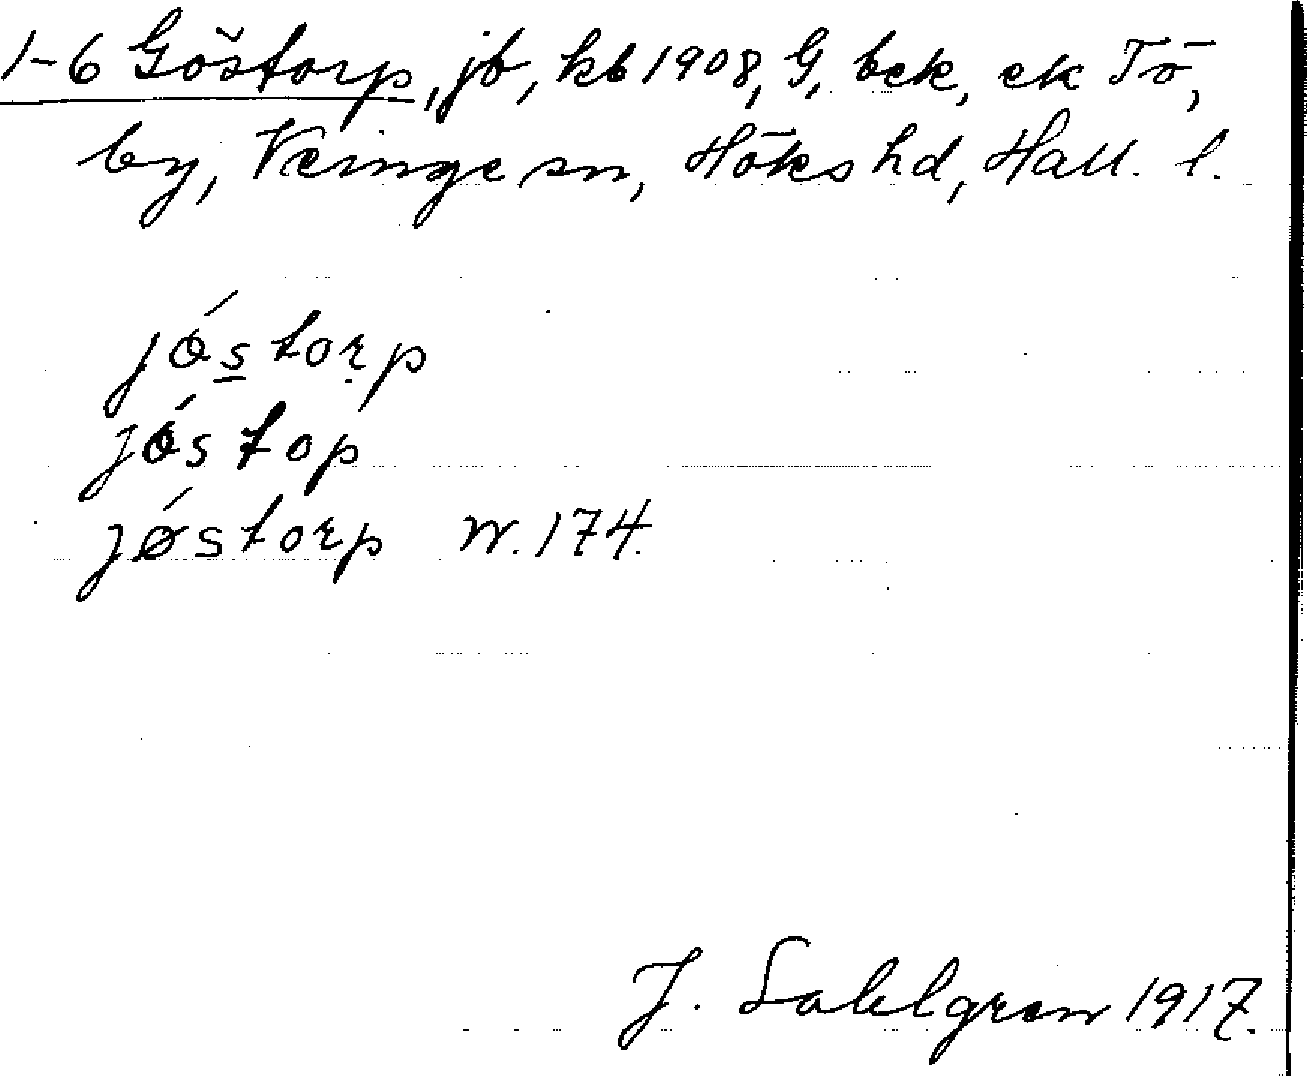 1-6 Göstorp, jb, kb 1908, G, bek, ek Tö,
by, Veinge sn, Höks hd, Hall. l.
jǿs̲torp
jǿstop
jǿstorp W. 174.
J. Sahlgren 1917.